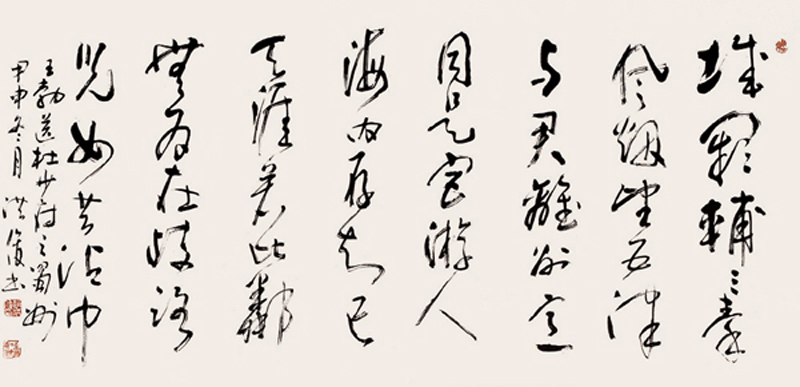 城闕輔三秦
风煙望五津
与君離别意
同是宦游人
海内存知己
天涯若比鄰
無为在歧路
児女共沾巾
王勃送杜少府之蜀州
甲申冬月 洪 书